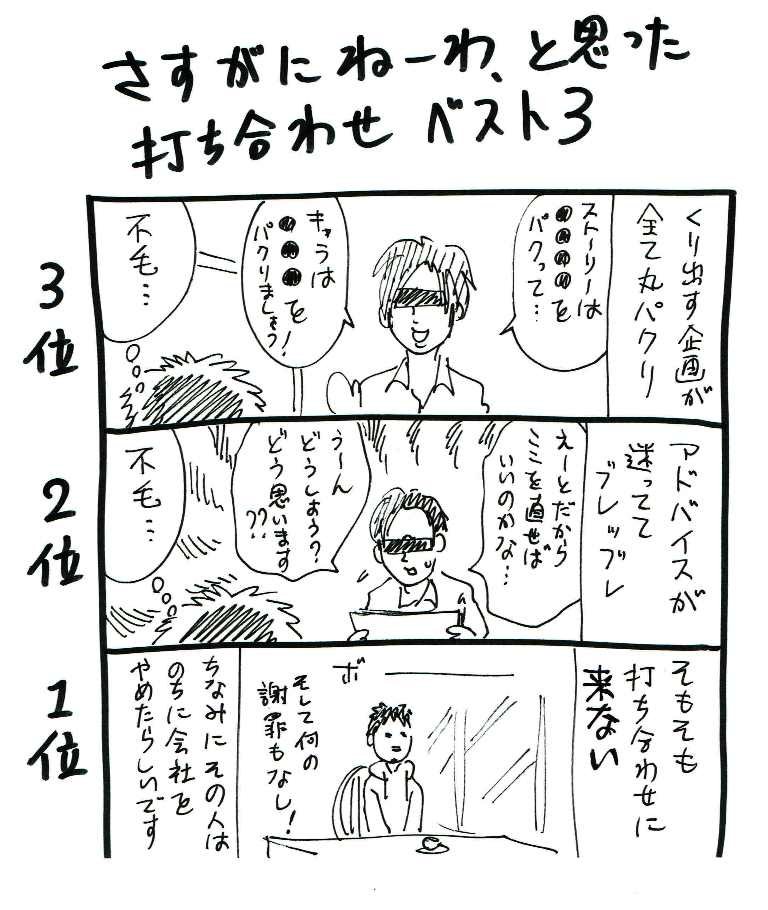 さすがにねーわ、と思った
打ち合わせ ベスト3
3位
くり出す企画が
全て丸パクリ
ストーリーは
●●●●を
パクって…
キャラは
●●●を
パクりましょう!
不毛…
2位
アドバイスが
迷ってて
ブレッブレ
えーとだから
ココを直せば
いいのかな…
うーん
どうしよう?
どう思います
??
不毛…
1位
そもそも
打ち合わせに
来ない
ボー
そして何の
謝罪もなし!
ちなみにその人は
のちに会社を
やめたらしいです